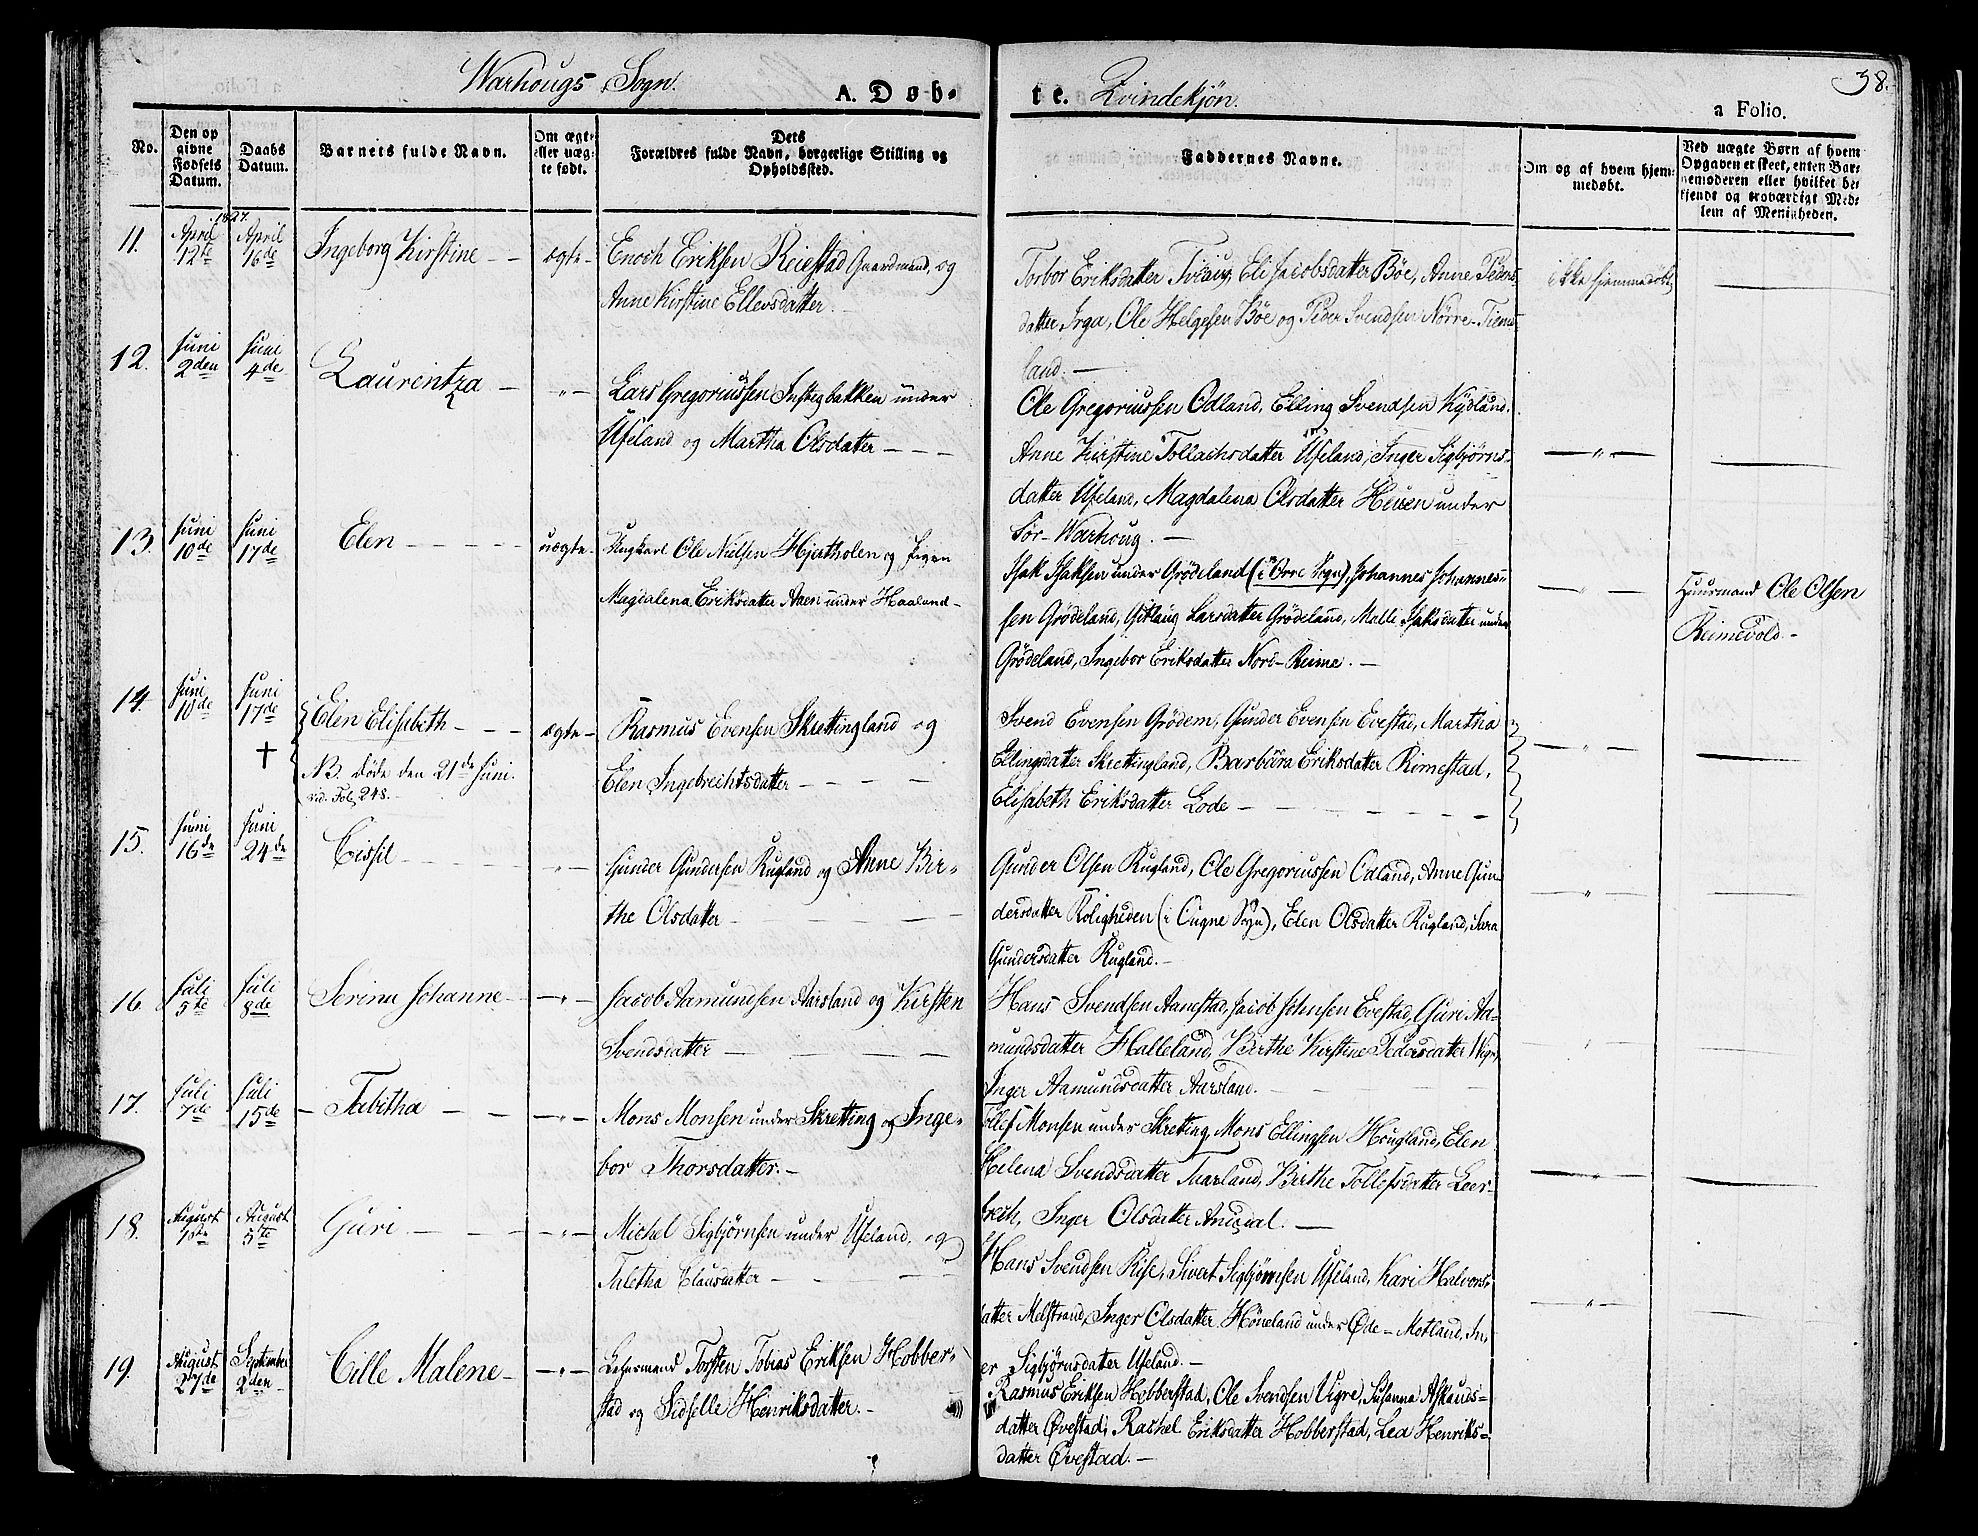 38.
Warhougs Sogn.
A. Døb-
te. Qvindekjøn.
a Folio.
No.
Den op
givne
Fødsels
Datum.
Daabs
Datum.
Barnets fulde Navn.
Om ægte
eller uæg-
te født.
Dets
Forældres fulde Navn, borgerlige Stilling og
Opholdssted.
Faddernes Navne.
Om og af hvem hjem-
medøbt.
Ved uægte Børn af hvem
Opgaven er skeet, enten Bar-
nemoderen eller hvilket be-
kjendt og troværdigt Med-
lem af Menigheden.
1827.
11.
April
12te
April
16de
Ingeborg Kirstine
ægte
Enoch Eriksen Reiestad Gaardmand, og
Anne Kirstine Ellevsdatter.
Torbor Eriksdatter Tviauv, Eli Jacobsdatter Bøe, Anne Peders-
datter Irga, Ole Helgesen Bøe og Peder Svendsen Nørre-Tiems-
land.
ikke hjemmedøbt
12.
Juni
2den
Juni
4de
Laurentza
"
Lars Gregoriussen Instigbakken under
Ueland og Martha Olsdatter
Ole Gregoriussen Odland, Elling Svendsen Kydland,
Anne Kirstine Tollachsdatter Ueland, Inger Sigbjørns-
datter Ueland, Magdalena Olsdatter Heien under
Sør-Warhoug.
"
13.
Juni
10de
Juni
17de
Elen
uægte
Ungkarl Ole Nielsen Hjertholen og Pigen
Magdalena Eriksdatter Aaen under Haaland
Isak Isaksen under Grødeland (i Orre Sogn), Johannes Johannes-
sen Grødeland, Guslaug Larsdatter Grødeland, Malle Isaksdatter under
Grødeland, Ingebor Eriksdatter Nord-Reime.
"
Huusmand Ole Olsen
Reimevold
14.
Juni
10de
Juni
17de
†
Elen Elisabeth
NB. Døde den 21de Juni.
vid. Fol. 248.
ægte
Rasmus Evensen Skrettingland og
Elen Ingebrechtsdatter
Svend Evensen Grødem, Gunder Evensen Evestad, Martha
Ellingsdatter Skrettingland, Barbara Eriksdatter Rimestad,
Elisabeth Eriksdatter Lode
"
15.
Juni
16de
Juni
24de
Cissil
"
Gunder Gundersen Rugland og Anne Bir-
the Olsdatter
Gunder Olsen Rugland, Ole Gregoriussen Odland, Anne Gun-
dersdatter Roligheden (i Ougne Sogn), Elen Olsdatter Rugland, Sara
Gundersdatter Rugland.
"
16.
Juli
5te
Juli
8de
Serina Johanne
"
Jacob Aamundsen Aarsland og Kirsten
Svendsdatter
Hans Svendsen Aanestad, Jacob Johnsen Evestad, Guri Aa-
mundsdatter Halleland, Birthe Kirstine Pedersdatter Wigr,
Inger Aamundsdatter Aarsland.
"
17.
Juli
7de
Juli
15de
Tabitha
"
Mons Monsen under Skretting og Inge-
bor Thorsdatter.
Tollef Monsen under Skretting, Mons Ellingsen Hougland, Elen
Helena Svendsdatter Taarland, Birthe Tollefsdatter Leer-
brech, Inger Olsdatter Anisdal.
"
18.
August
1ste
August
5te
Guri
"
Michel Sigbjørnsen under Ueland, og
Taletha Clausdatter
Hans Svendsen Rise, Sivert Sigbjørnsen Ueland, Kari Halvors-
datter Malstrand, Inger Olsdatter Høneland under Øde-Motland, In-
er Sigbjørnsdatter Ueland.
"
19.
August
27de
September
2den
Cille Malene
"
Lehnsmand Torsten Tobias Eriksen Hobber-
stad og Sidselle Henriksdatter.
Rasmus Eriksen Hobberstad, Ole Svendsen Vigre, Susanna Aslaugs-
datter Øvestad, Rachel Eriksdatter Hobberstad, Lea Henriks-
datter Øvestad.